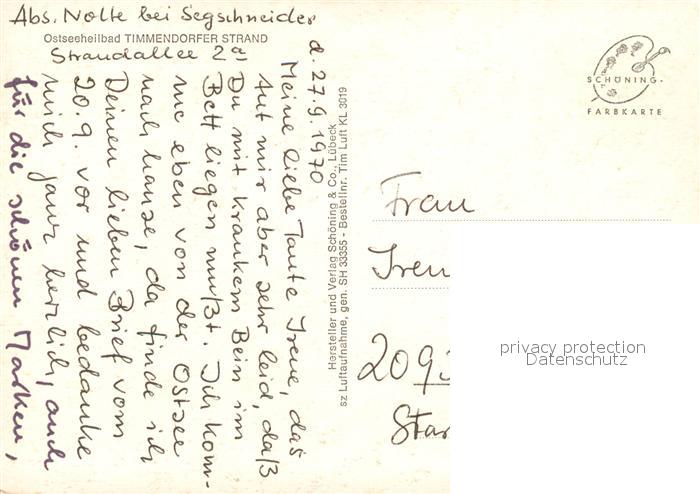 Abs. Nolte bei Segschneider
Ostseeheilbad TIMMENDORFER STRAND
Strandallee 2a
d. 27.9.1970
Meine liebe Tante Irene, das
tut mir aber sehr leid, daß
Du mit krankem Bein im
Bett liegen mußt. Ich kom-
me eben von der Ostsee
nach hause, da finde ich
Deinen lieben Brief vom
20.9. vor und bedanke
mich ganz herzlich, auch
für die schönen Marken,
Hersteller und Verlag Schöning & Co., Lübeck
sz Luftaufnahme, gen. SH 33355 - Bestellnr. Tim Luft KL 3019
SCHÖNING-
FARBKARTE
Frau
Iren
209
Star
privacy protection
Datenschutz